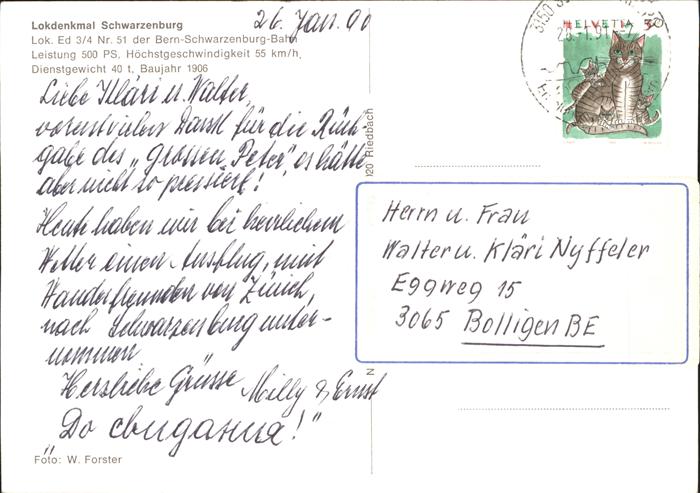 Lokdenkmal Schwarzenburg
Lok. Ed 3/4 Nr. 51 der Bern-Schwarzenburg-Bahn
Leistung 500 PS, Höchstgeschwindigkeit 55 km/h,
Dienstgewicht 40 t, Baujahr 1906
26. Jan. 90
Liebe Kläri u. Walter,
vorerst vielen Dank für die Rück-
gabe des „grossen Peter", es hätte
aber nicht so pressiert!
Heute haben wir bei herrlichem
Wetter einen Ausflug, mit
Wanderfreunden von Zürich,
nach Schwarzenburg unter-
nommen
Herzliche Grüsse Milly & Ernst
„До свидания!"
Foto: W. Forster
Riedbach
HELVETIA
Herrn u. Frau
Walter u. Kläri Nyffeler
Eggweg 15
3065 Bolligen BE